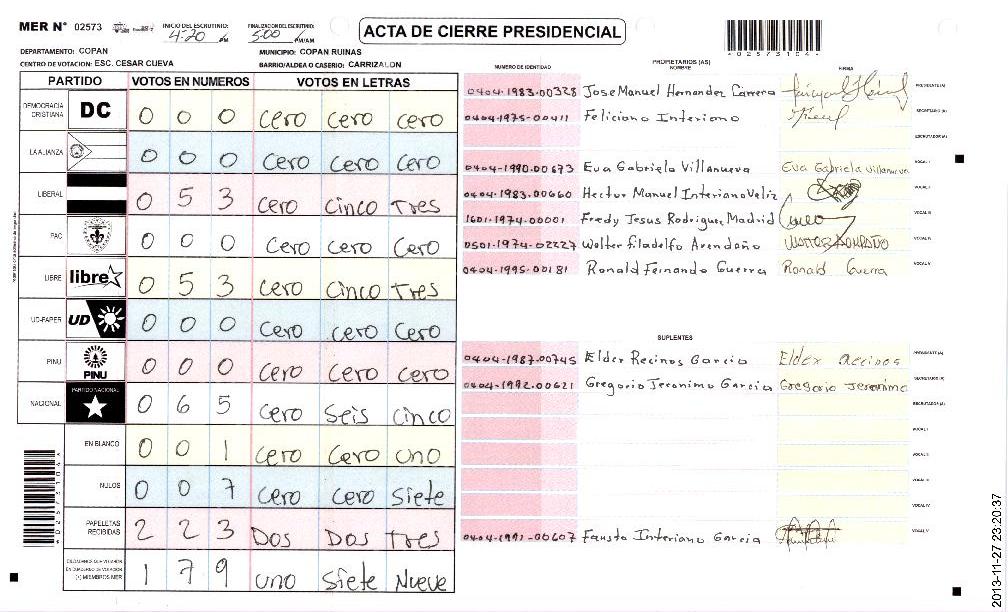 MER N° 02573
INICIO DEL ESCRUTINIO: 4:20 PM
FINALIZACION DEL ESCRUTINIO: 5:00 PM/AM
ACTA DE CIERRE PRESIDENCIAL
DEPARTAMENTO: COPAN
MUNICIPIO: COPAN RUINAS
CENTRO DE VOTACION: ESC. CESAR CUEVA
BARRIO/ALDEA O CASERIO: CARRIZALON
PARTIDO VOTOS EN NUMEROS VOTOS EN LETRAS
DEMOCRACIA CRISTIANA DC 0 0 0 Cero Cero Cero
LA ALIANZA 0 0 0 Cero Cero Cero
LIBERAL 0 5 3 Cero Cinco Tres
PAC 0 0 0 Cero Cero Cero
LIBRE libre 0 5 3 Cero Cinco Tres
UD-FAPER UD 0 0 0 Cero Cero Cero
PINU PINU 0 0 0 Cero Cero Cero
NACIONAL PARTIDO NACIONAL 0 6 5 Cero Seis Cinco
EN BLANCO 0 0 1 Cero Cero uno
NULOS 0 0 7 Cero Cero Siete
PAPELETAS RECIBIDAS 2 2 3 Dos Dos Tres
CIUDADANOS QUE VOTARON EN CUADERNO DE VOTACION (+) MIEMBROS MER 1 7 9 uno Siete Nueve
NUMERO DE IDENTIDAD PROPIETARIOS (AS) NOMBRE FIRMA
0404-1983-00328 Jose Manuel Hernandez Carrera PRESIDENTE (A)
0404-1975-00411 Feliciano Interiano SECRETARIO (A)
ESCRUTADOR (A)
0404-1990-00673 Eva Gabriela Villanueva Eva Gabriela Villanueva VOCAL I
0404-1983-00660 Hector Manuel Interiano Veliz VOCAL II
1601-1974-00001 Fredy Jesus Rodriguez Madrid VOCAL III
0501-1974-02227 Wolter filadelfo Avendaño VOCAL IV
0404-1995-00181 Ronald Fernando Guerra Ronald Guerra VOCAL V
SUPLENTES
0404-1987-00745 Elder Recinos Garcia Elder Recinos PRESIDENTE (A)
0404-1992-00621 Gregorio Jeronimo Garcia Gregorio Jeronimo SECRETARIO (A)
ESCRUTADOR (A)
VOCAL I
VOCAL II
VOCAL III
VOCAL IV
0404-1991-00607 Fausto Interiano Garcia VOCAL V
2013-11-27 23:20:37